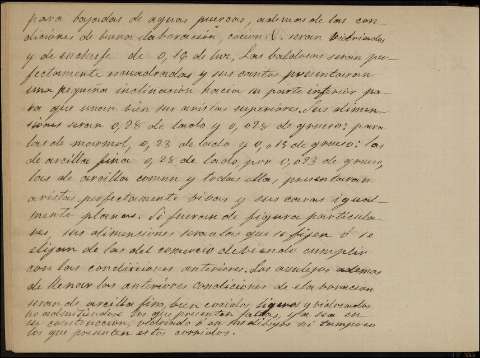 para bajadas de aguas puercas, ademas de las con-
diciones de buena elaboracion, cocion &. seran vidriadas
y de enchufe de 0,18 de luz. Las baldosas seran per-
fectamente escuadradas y sus cantos presentaran
una pequeña inclinacion hacia su parte inferior pa-
ra que unan bien sus aristas superiores. Sus dimen-
siones seran 0,28 de lado y 0,028 de grueso; para
las de marmol, 0,28 de lado y 0,013 de grueso: las
de arcilla fina 0,28 de lado por 0,023 de grueso,
las de arcilla comun y todas ellas, presentaran
aristas perfectamente vivas y sus caras igual-
mente planas. Si fueran de figura particula-
res, sus dimensiones seran las que se fijen ó se
elijan de las del comercio debiendo cumplir
con las condiciones anteriores. Los azulejos ademas
de llenar las anteriores condiciones de elaboracion
seran de arcilla fina, bien cocidos, ligeros y vidriados
no admitiendose los que presenten faltas, ya sea en
su construccion, vidriado ó en sus dibujos ni tampoco
los que presenten estos corridos.